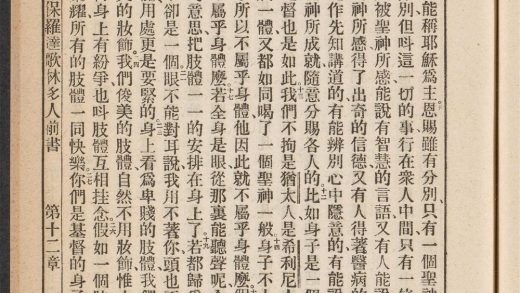 能稱耶穌爲主恩賜雖有分別只有一個聖
別但呌這一切的事行在衆人中間只有一
被聖神所感能說有智慧的言語又有人能說
神所感得了出奇的信德又有人得著醫病的
作先知講道的有能辨別心中隱意的有能說
神所成就隨意分賜各人的比如身子是一個
督也是如此我們不拘是猶太人是希利尼
一體又都如同喝了一個聖神一般身子不
所以不屬乎身體他因此就不屬乎身體麼
屬乎身體麼若全身是眼從那裏能聽聲呢
意思把肢體一一的安排在身上了若都歸
卻是一個眼不能對耳說我用不著你頭也
用處更是要緊的身上看爲卑賤的肢體我
的妝飾我們俊美的肢體自然不用妝飾惟
身上有紛爭也呌肢體互相挂念假如一個
耀所有的肢體一同快樂你們是基督的身
保羅達歌林多人前書 第十二章